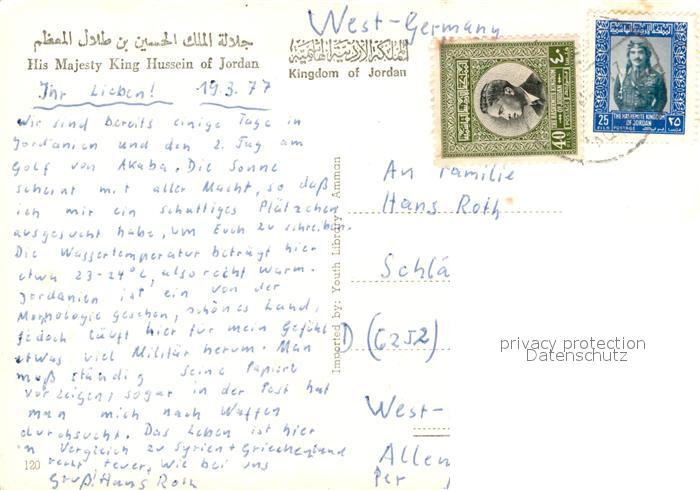 West-Germany
جلالة الملك الحسين بن طلال المعظم
His Majesty King Hussein of Jordan
المملكة الأردنية الهاشمية
Kingdom of Jordan
Ihr Lieben! 19.3.77
Wir sind bereits einige Tage in
Jordanien und den 2. Tag am
Golf von Akaba. Die Sonne
scheint mit aller Macht, so daß
ich mir ein schattiges Plätzchen
ausgesucht habe, um Euch zu schreiben.
Die Wassertemperatur beträgt hier
etwa 23-24°C, also recht warm.
Jordanien ist ein von der
Morphologie gesehen, schönes Land,
jedoch läuft hier für mein Gefühl
etwas viel Militär herum. Man
muß ständig seine Papiere
vorzeigen; sogar in der Post hat
man mich nach Waffen
durchsucht. Das Leben ist hier
in Vergleich zu Syrien + Griechenland
recht teuer, wie bei uns
Gruß! Hans Roth
120
Imported by: Youth Library - Amman
40
٤٠
THE HASHEMITE KINGDOM
OF JORDAN
25
FILS POSTAGE
٢٥
An Familie
Hans Roth
Schlä
D (6252)
West-
Allen
Per
privacy protection
Datenschutz